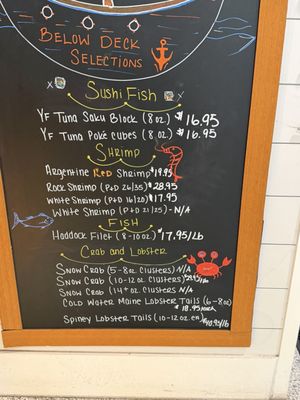 BELOW DECK
SELECTIONS
Sushi Fish
YF Tuna Saku Block (8 oz) $16.95
YF Tuna Poké Cubes (8 oz) $16.95
Shrimp
Argentine Red Shrimp $19.95
Rock Shrimp (P+D 26/35) $28.95
White Shrimp (P+D 16/20) $17.95
White Shrimp (P+D 21/25) - N/A
FISH
Haddock Filet (8-10 oz) $17.95/lb
Crab and Lobster
Snow Crab (5-8 oz Clusters) N/A
Snow Crab (10-12 oz Clusters)
Snow Crab (14+ oz Clusters N/A
Cold Water Maine Lobster Tails (6-8oz)
$18.95 each
Spiney Lobster Tails (10-12 oz ea)